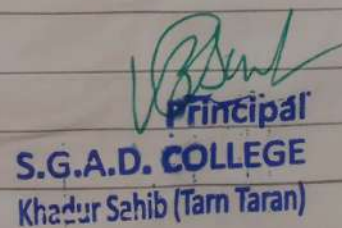 Principal
S.G.A.D. COLLEGE
Khadur Sahib (Tarn Taran)